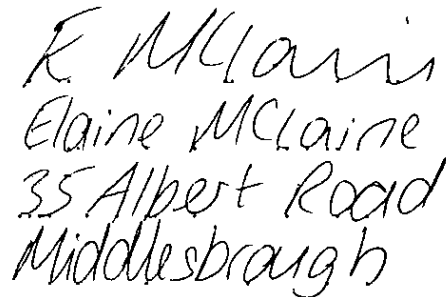 E McLain
Elaine McLaine
35 Albert Road
Middlesbrough